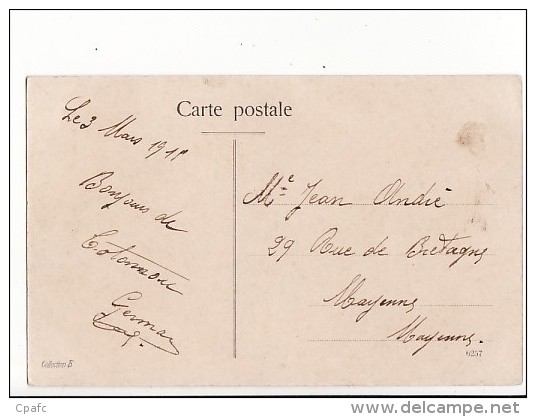 Carte postale
Le 3 Mars 191
Bonjour de
Cotonnou
Germa
Me Jean André
29 Rue de Bretagne
Mayenne
Mayenne.
Collection B
6257
© Cpafc
delcampe.net